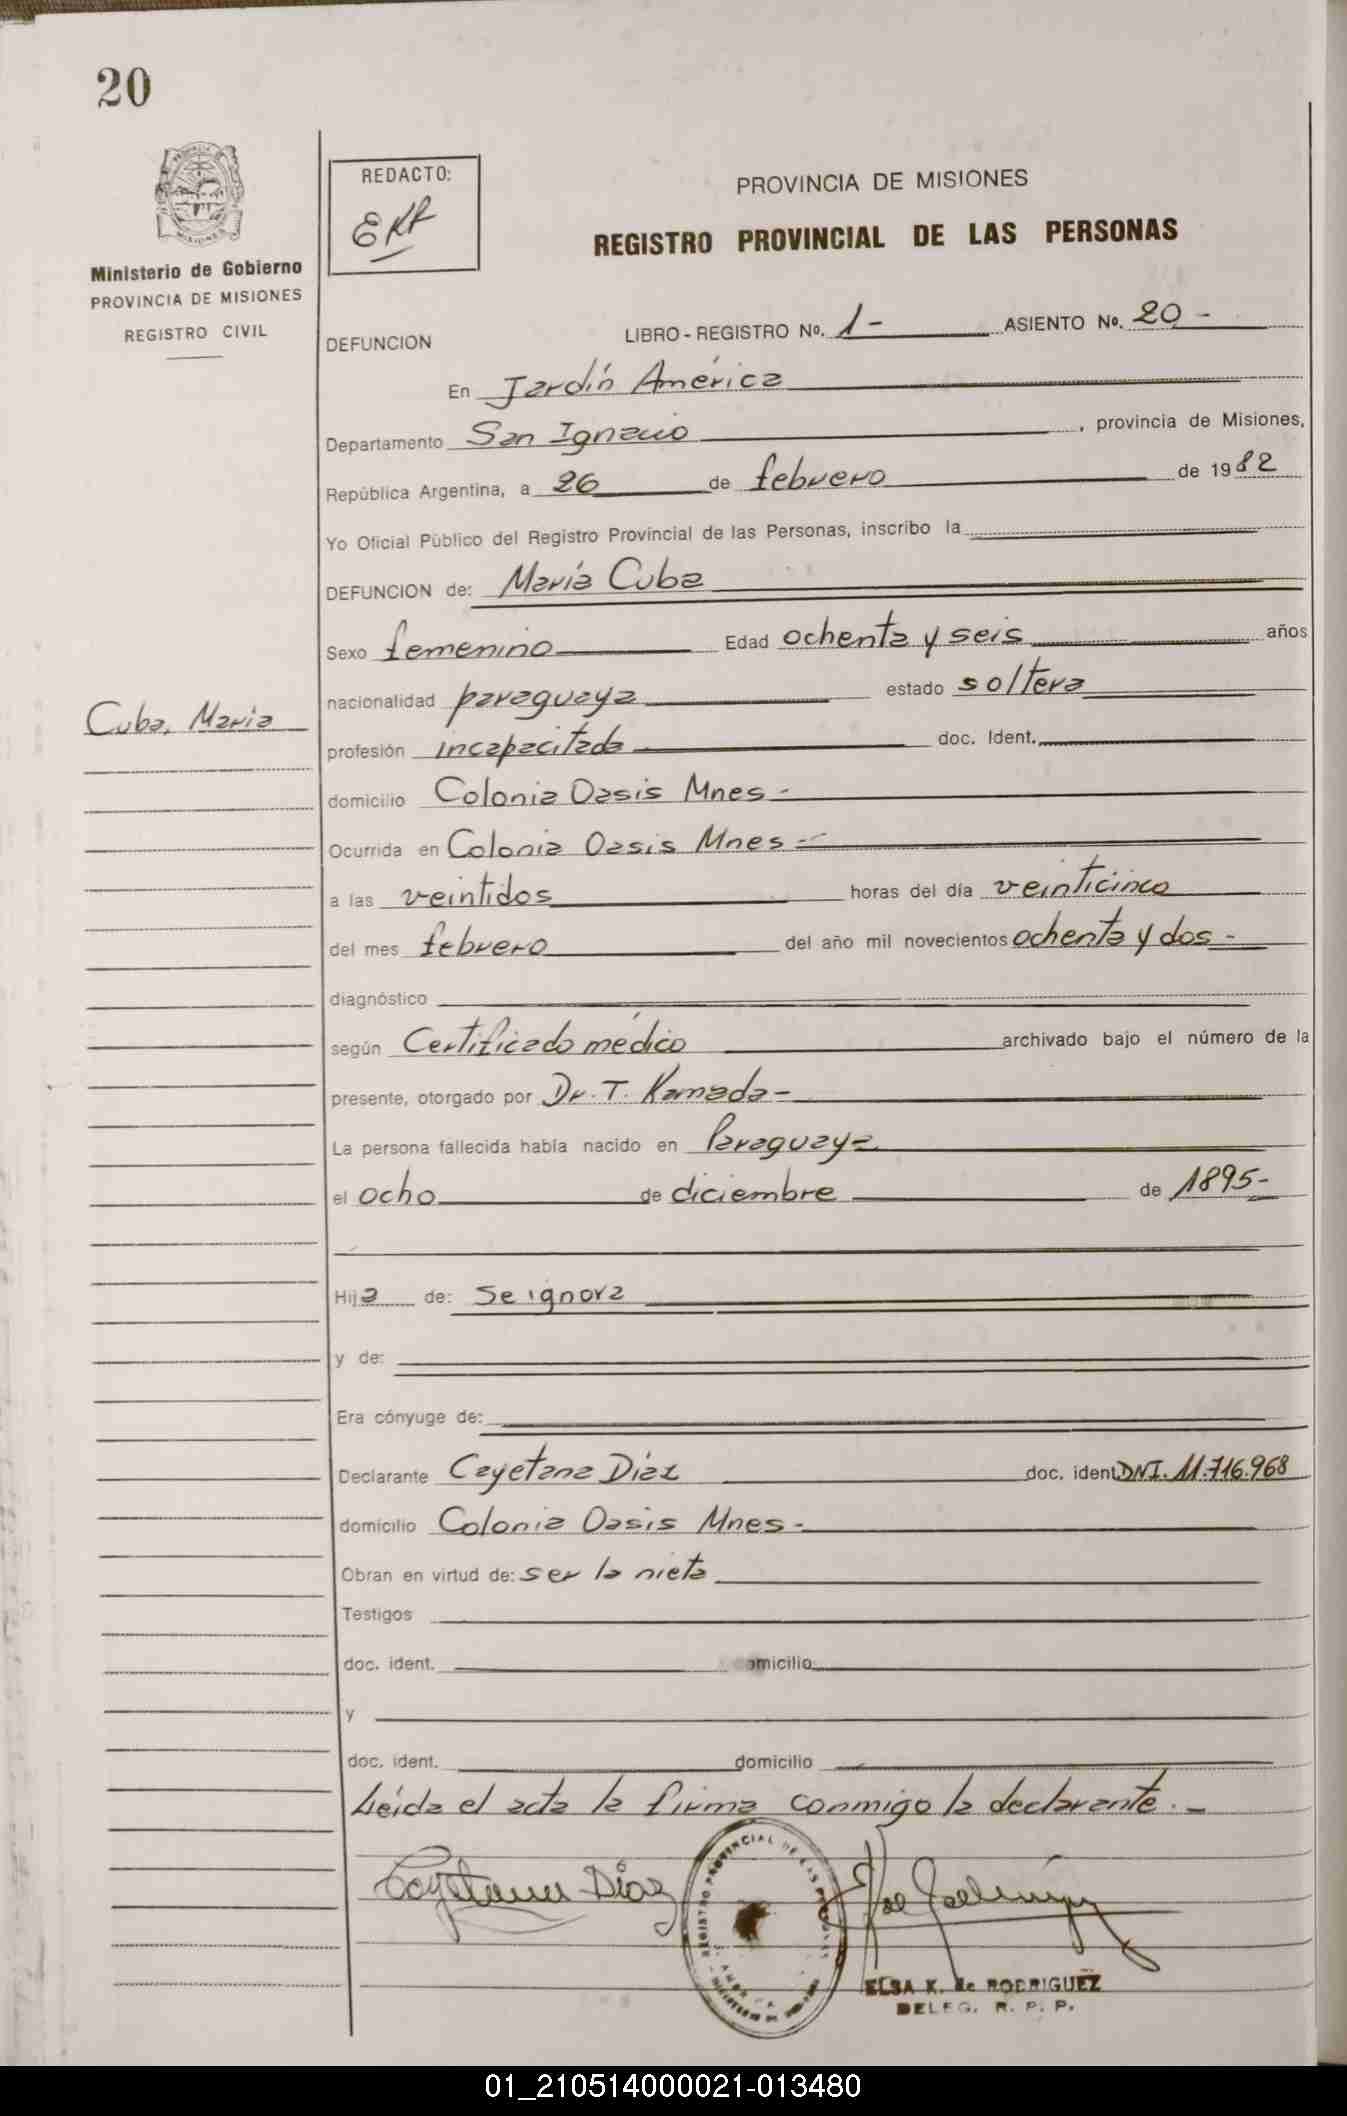 20
PROVINCIA DE
MISIONES
Ministerio de Gobierno
PROVINCIA DE MISIONES
REGISTRO CIVIL
REDACTO:
EKR
PROVINCIA DE MISIONES
REGISTRO PROVINCIAL DE LAS PERSONAS
DEFUNCION LIBRO - REGISTRO No. 1- ASIENTO No. 20 -
En Jardín América
Departamento San Ignacio , provincia de Misiones,
República Argentina, a 26 de febrero de 1982
Yo Oficial Público del Registro Provincial de las Personas, inscribo la
DEFUNCION de: María Cuba
Sexo femenino Edad ochenta y seis años
nacionalidad paraguaya estado soltera
Cuba, Maria
profesión incapacitada doc. Ident.
domicilio Colonia Oasis Mnes -
Ocurrida en Colonia Oasis Mnes -
a las veintidos horas del día veinticinco
del mes febrero del año mil novecientos ochenta y dos -
diagnóstico
según Certificado médico archivado bajo el número de la
presente, otorgado por Dr. T. Kamada -
La persona fallecida había nacido en Paraguaya
el ocho de diciembre de 1895-
Hija de: Se ignora
y de:
Era cónyuge de:
Declarante Cayetana Díaz doc. ident DNI. 11.716.968
domicilio Colonia Oasis Mnes -
Obran en virtud de: ser la nieta
Testigos
doc. ident. omicilio
y
doc. ident. domicilio
Leída el acta la firma conmigo la declarante. -
Cayetana Díaz
REGISTRO PROVINCIAL DE LAS PERSONAS
ELSA K. de RODRIGUEZ
DELEG. R. P. P.
01_210514000021-013480